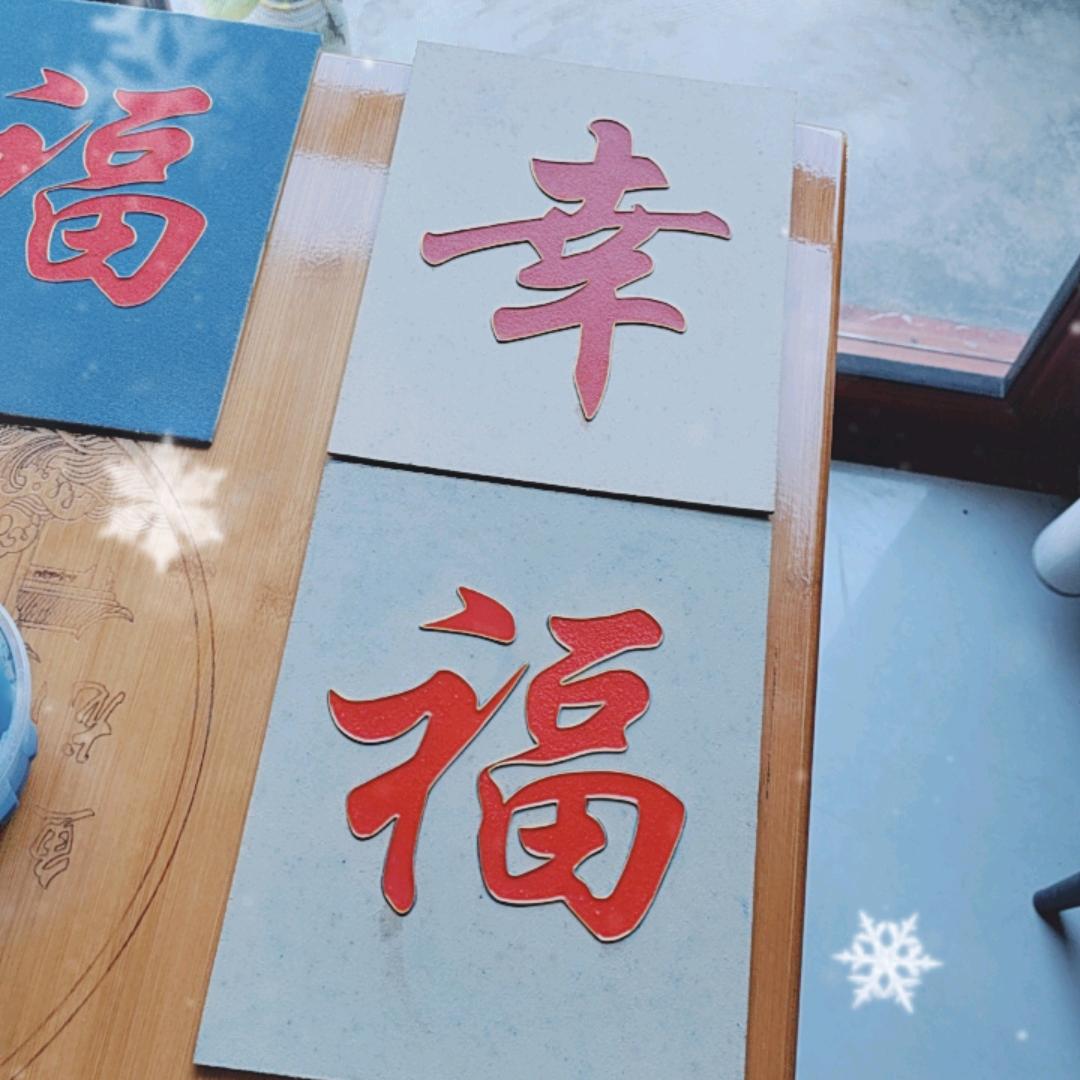 福
幸
福